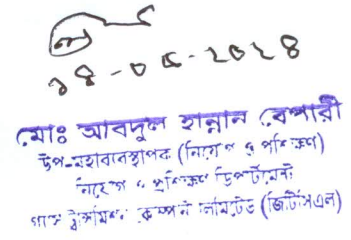 ১৪-০৫-২০২৪
মোঃ আবদুল হান্নান বেপারী
উপ-মহাব্যবস্থাপক (নিয়োগ ও প্রশিক্ষণ)
নিয়োগ ও প্রশিক্ষণ ডিপার্টমেন্ট
গ্যাস ট্রান্সমিশন কোম্পানী লিমিটেড (জিটিসিএল)